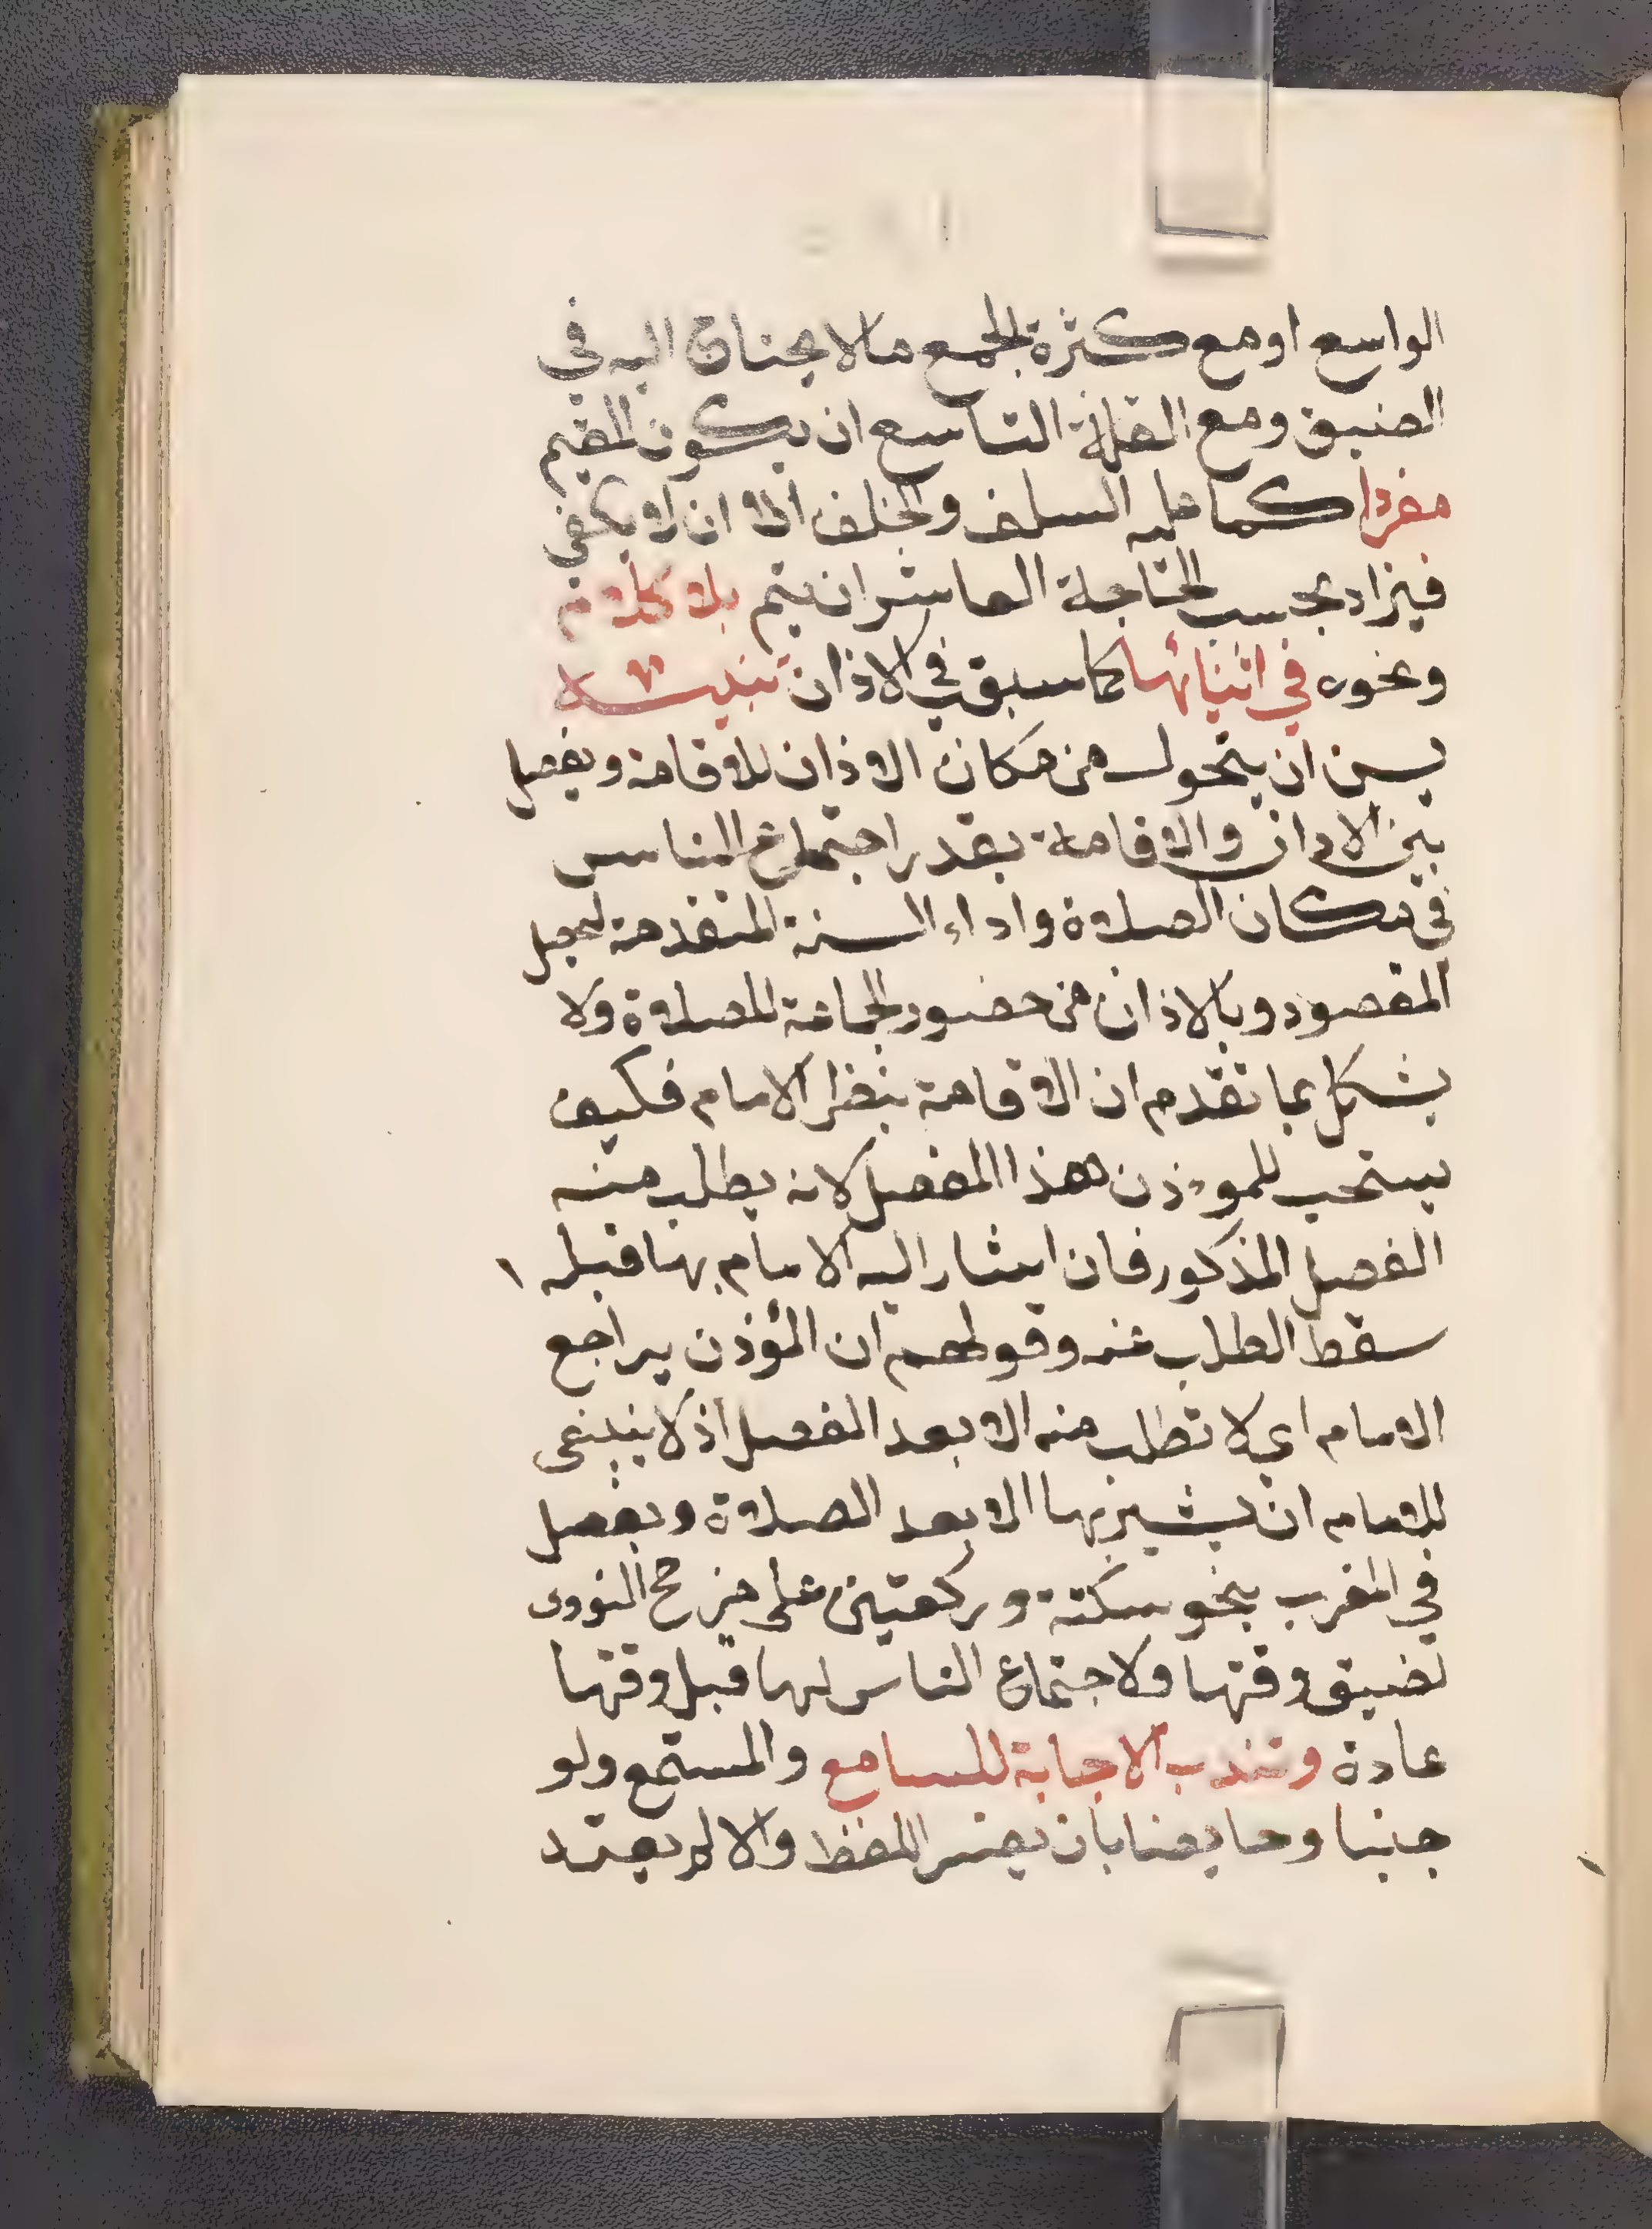 الواسع او مع كثرة الجمع ما لا يحتاج اليه في
الضيق ومع القلة التاسع ان يكون المقيم
مفردا كما عليه السلف والخلف الا ان لا يكفي
فيزاد بحسب الحاجة العاشر ان يتم بلا كلام
ونحوه في اثنائها كما سبق في الاذان تنبيه
يسن ان يتحول من مكان الاذان للاقامة ويفصل
بين الاذان والاقامة بقدر اجتماع الناس
في مكان الصلاة واداء السنة المتقدمة ليحصل
المقصود وبالاذان من حضور الجماعة للصلاة ولا
يشكل بما تقدم ان الاقامة بنظر الامام فكيف
يستحب للموذن هذا الفصل لانه يطلب منه
الفصل المذكور فان اشار اليه الامام بها قبله
سقط الطلب عنه وقولهم ان المؤذن يراجع
الامام اي لا تطلب منه الا بعد الفصل اذ لا ينبغى
للامام ان يشير بها الا بعد الصلاة ويفصل
في المغرب بنحو سكتة وركعتين على مرجح النووى
لضيق وقتها ولاجتماع الناس لها قبل وقتها
عادة وتندب الاجابة للسامع والمستمع ولو
جنبا وحايضا بان يفسر اللفظ والا لم يعتد